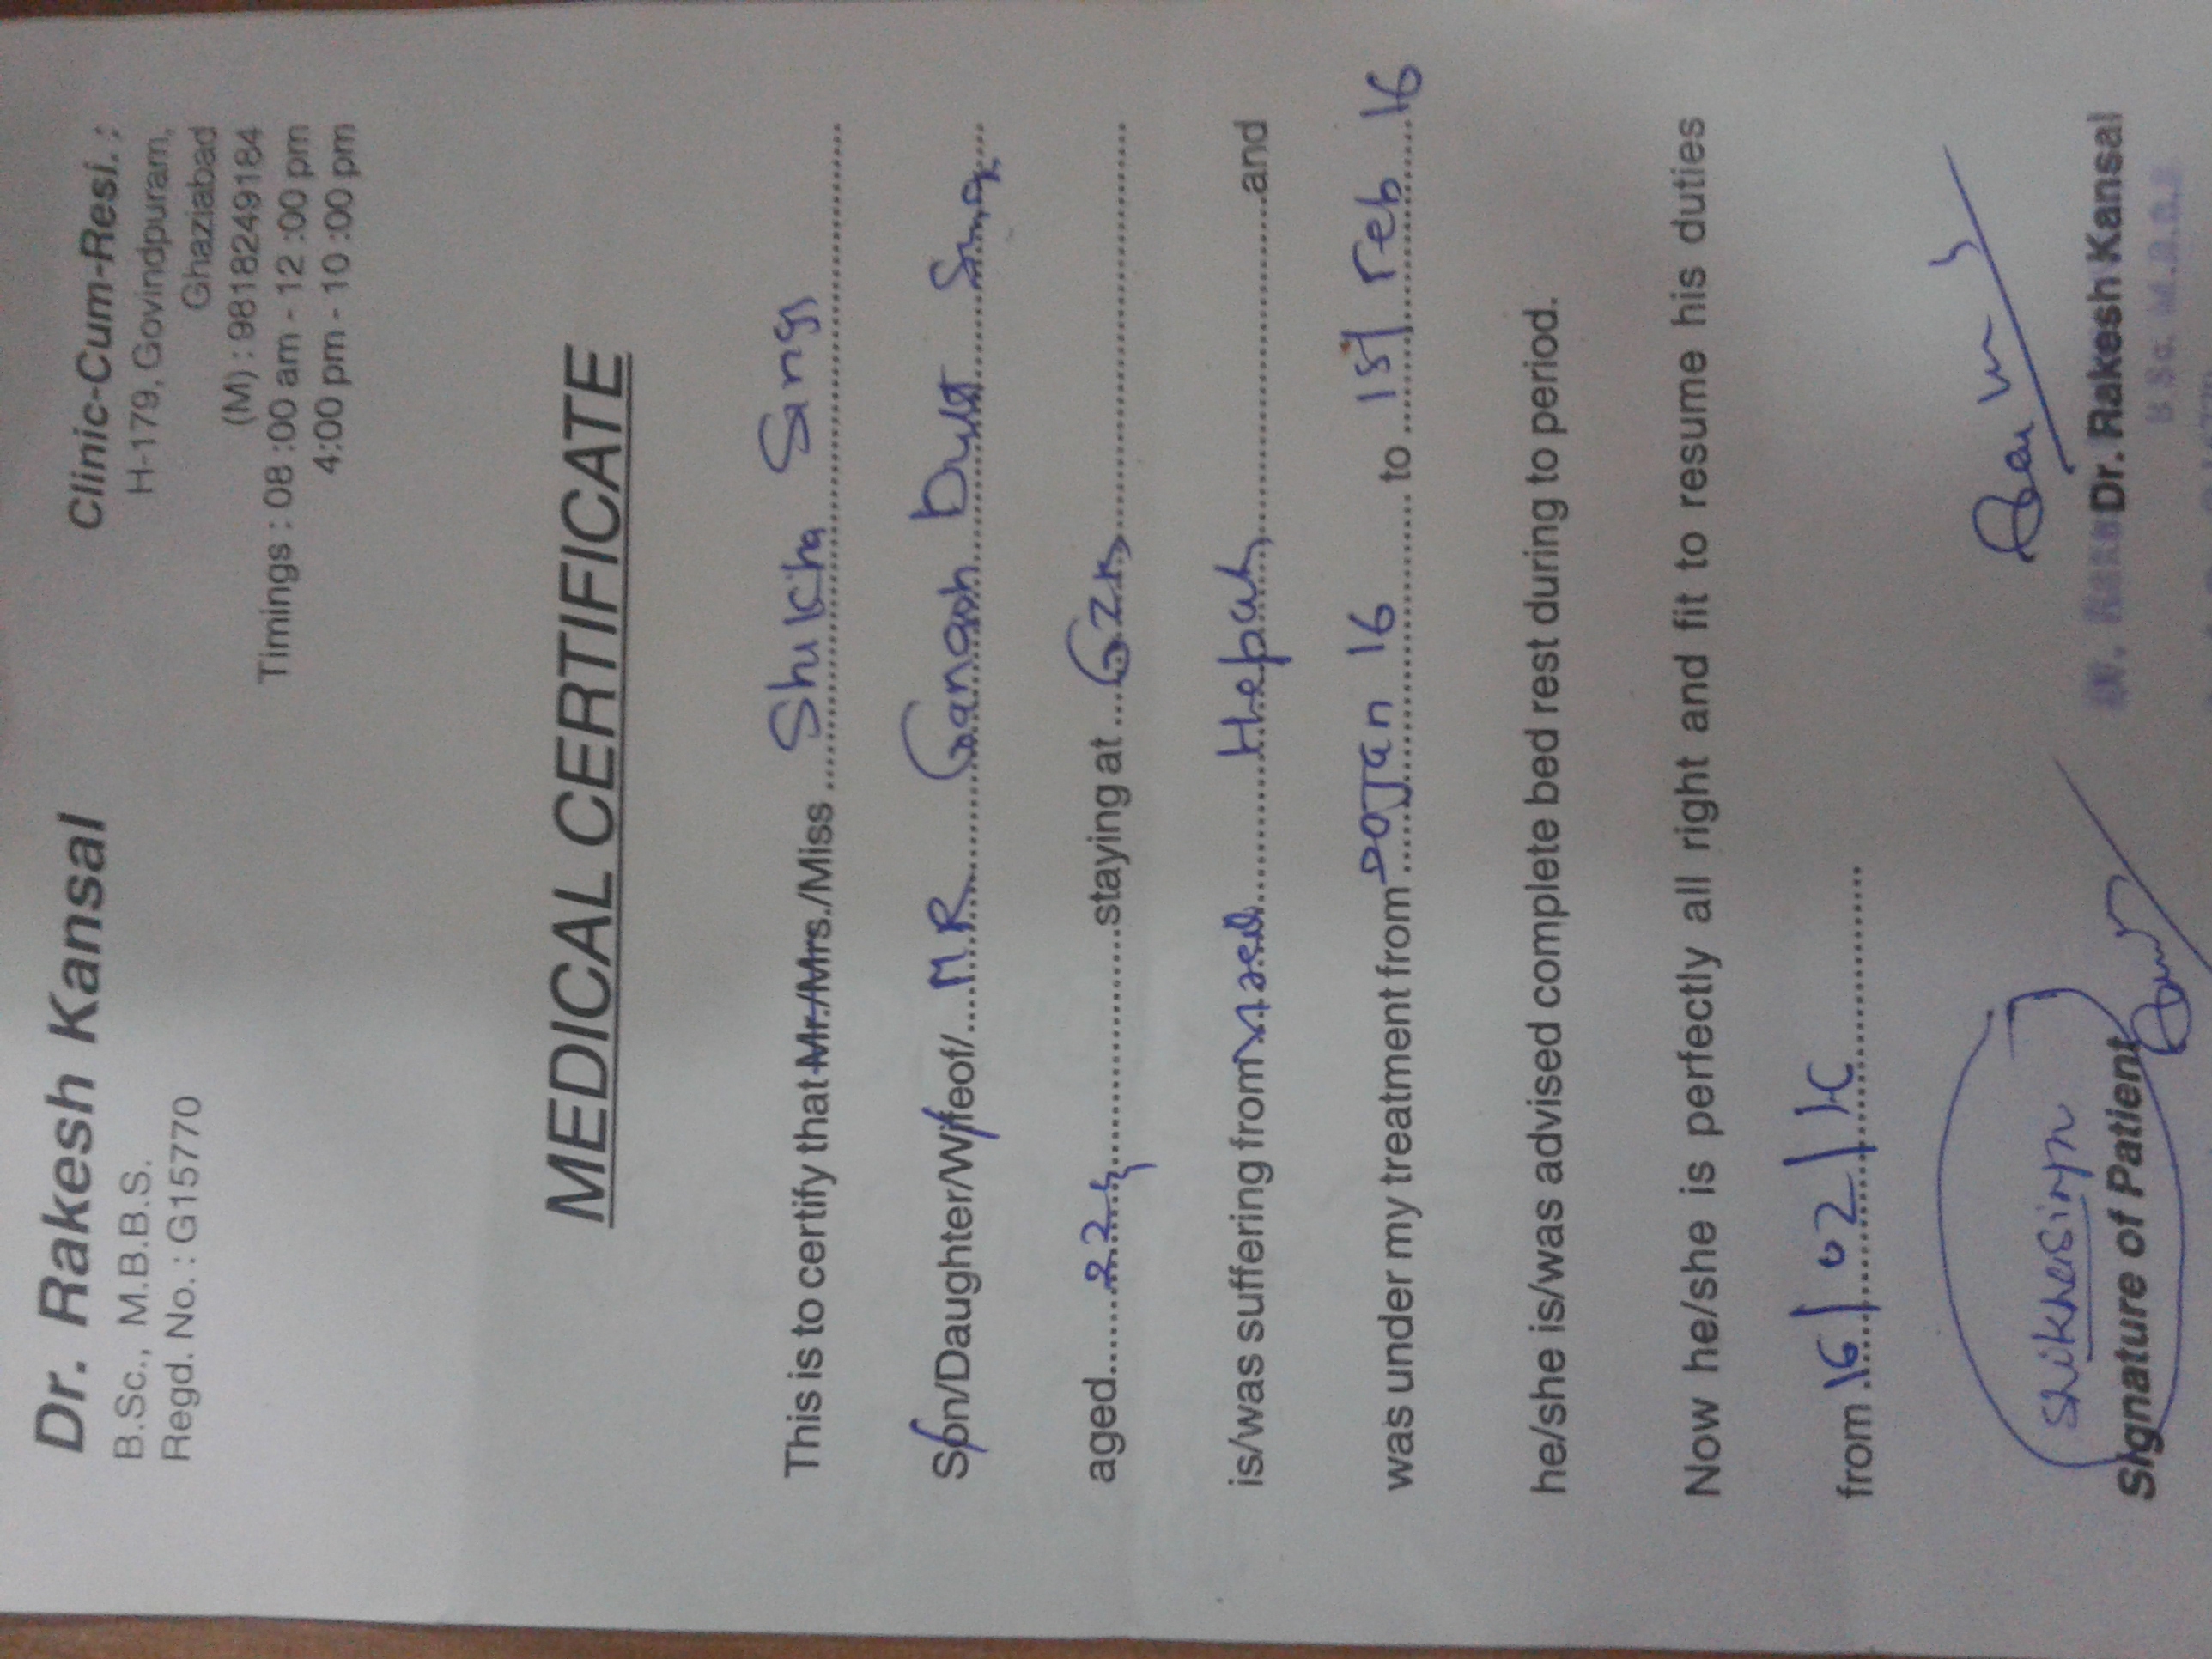 Dr. Rakesh Kansal
B.Sc., M.B.B.S.
Regd. No. : G15770
Clinic-Cum-Resi. ;
H-179, Govindpuram,
Ghaziabad
(M) : 9818249184
Timings : 08 :00 am - 12 :00 pm
4:00 pm - 10 :00 pm
MEDICAL CERTIFICATE
This is to certify that Mr./Mrs./Miss
Son/Daughter/Wifeof/ MR Dutt
aged 22 staying at GZB
is/was suffering from and
was under my treatment from Jan 16 to 1st Feb 16
he/she is/was advised complete bed rest during to period.
Now he/she is perfectly all right and fit to resume his duties
from 16/02/
Signature of Patient
Dr. Rakesh Kansal